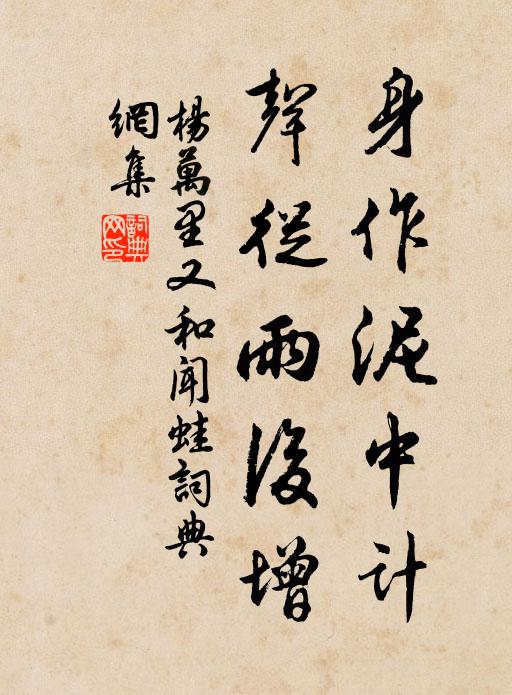 身作泥中計
聲從雨後增
楊萬里又和聞蛙詞典
網集
詞典
网印